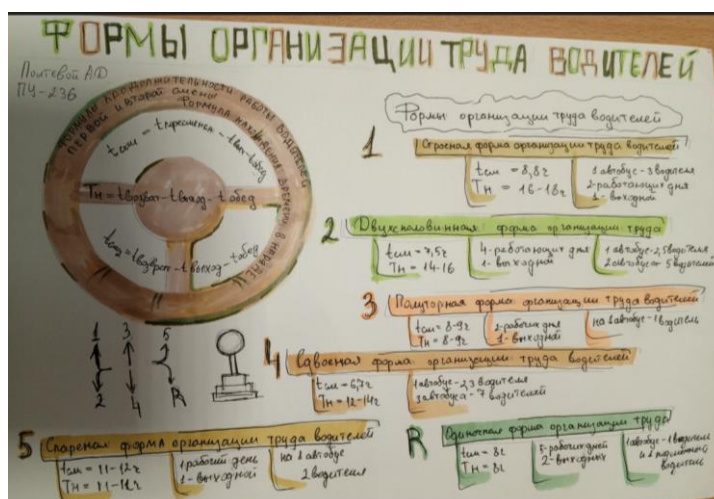 ФОРМЫ ОРГАНИЗАЦИИ ТРУДА ВОДИТЕЛЕЙ
ПУ-236
ФОРМУЛЫ ПРОДОЛЖИТЕЛЬНОСТИ РАБОТЫ ВОДИТЕЛЕЙ
ПЕРВОЙ И ВТОРОЙ СМЕНЫ
ФОРМУЛА НАХОЖДЕНИЯ ВРЕМЕНИ В НАРЯДЕ
Tн = tвозврат - tвыход - tобед
1 3 5
2 4 R
Формы организации труда водителей
1
Строенная форма организации труда водителей
tсм = 8,8ч
Tн = 16-18ч
1 автобус - 3 водителя
2-работающих дня
1- выходной
2
Двухсполовинная форма организации труда
tсм = 7,5ч
Tн = 14-16
4-работающих дня
1- выходной
1 автобус - 2,5 водителя
2 автобуса - 5 водителей
3
Полуторная форма организации труда водителей
tсм = 8-9ч
Tн = 8-9ч
2-рабочих дня
1- выходной
на 1 автобус - 1 водитель
4
Сдвоенная форма организации труда водителей
tсм = 6,7ч
Tн = 12-14ч
1 автобус - 2,3 водителя
3 автобуса - 7 водителей
5
Спаренная форма организации труда водителей
tсм = 11-12ч
Tн = 11-12ч
1 рабочий день
1- выходной
на 1 автобус
2 водителя
R
Одиночная форма организации труда
tсм = 8ч
Tн = 8ч
5-рабочих дней
2- выходных
1 автобус - 1 водитель
и 1 подменный
водитель